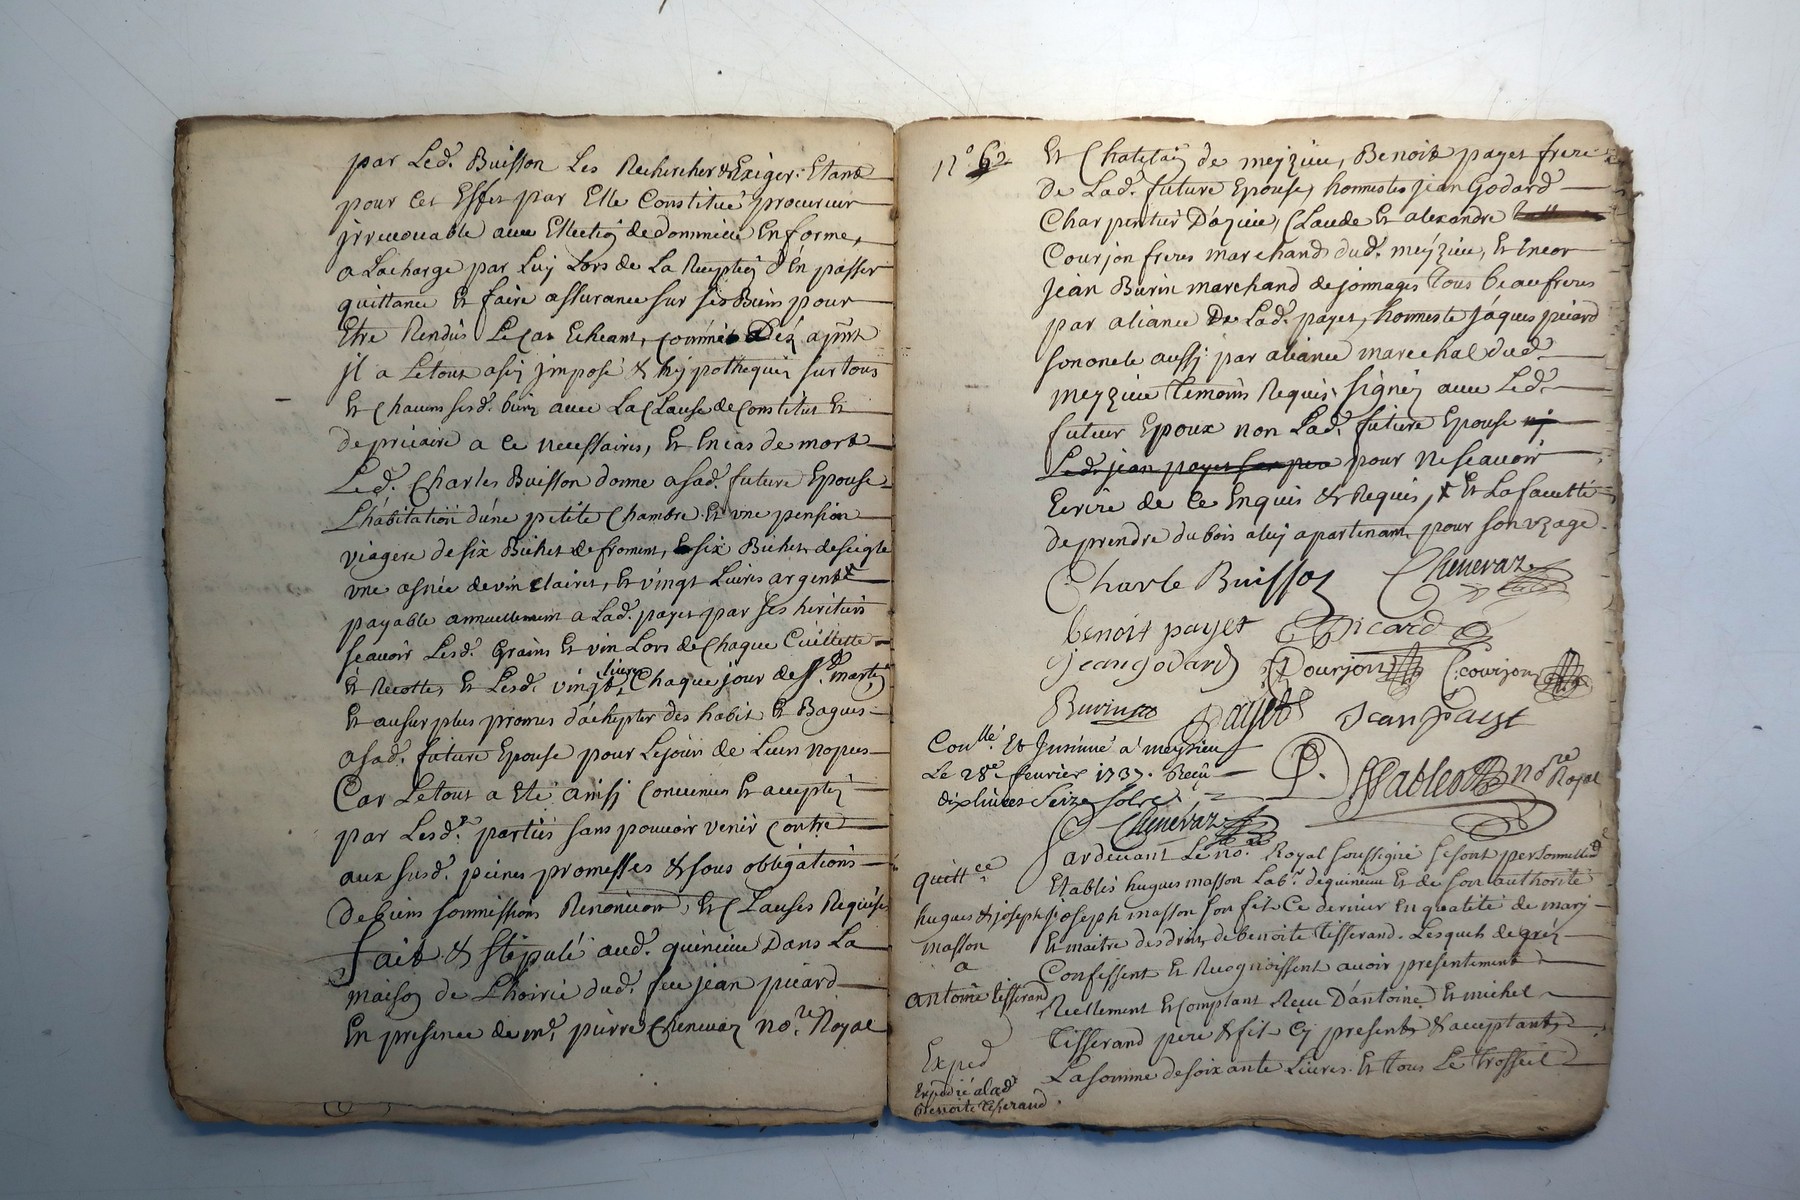 par Led. Buisson Les Rechercher & Exiger. Etant
pour cet Effet par Elle Constitué procureur
jrreuocable auec Ellection de dommicile En forme,
a Lacharge par Luy Lors de La Reception d'En passer
quittance Et faire assurance sur ses Biens pour
Etre Rendus Le Cas Echeant, comme Déz apnt
jl a Letout asin jmposé & hypothequéz sur tous
Et Chacuns sesd. biens auec La Clause de Constitut Et
de précaire a ce necessaires, Et En cas de mort
Led. Charles Buisson donne a sad. future Epouse
L'habitation d'úne petite Chambre Et vne pension
viagere de six Bichet de froment, six Bichet de seigle
vne asnée de vin Claires, Et vingt Liures argent
payable annuellement a Lad. payet par ses heritiers
scauoir Lesd. Grains Et vin Lors de Chaque Cüillette
Et Recoltes Et Lesd. vingt livres Chaque jour de st. martin
Et au surplus promes d'achepter des habit Et Bagues
a sad. future Epouse pour Lejour de Leurs nopces
Car Letout a Eté ainsj Conuenus Et acceptéz
par Lesd. parties sans pouuoir venir Contre
aux susd. peines promesses & sous obligations
de biens sommissions Renoncions, Et Clauses Requises
fait & stipulé aud. quincieu Dans La
maison de L'hoirie dud. feu jean picard
En presence de me. pierre Cheneuaz no.re Royal
n° 62
Et Chatelain de meyzieu, Benoit payet frere
de Lad. future Epouse, honnestes jean Godard
Charpentier D'azieu, Claude Et alexandre
Courjon freres marchands dud. meyzieu, Et Encor
jean Burin marchand de jonnages Tous beaufreres
par aliance De Lad. payet, honneste jáques picard
son oncle aussj par aliance marechal dud.
meyzieu Temoins Requis, signéz auec Led.
futeur Epoux non Lad. future Epouse nj
Led. jean payet son pere pour Ne scauoir
Ecrire de ce Enquis & Requis, x Et La faculté
de prendre du bois a luy apartenant pour son vzage.
Charle Buisson Chenevaz
benoit payet Picard
jean godard A Courjon C. courjon
Burin payet Jean Payet
Conllé. Et Jnsinué á meyzieu
Le 28e feurier 1737. Reçu
dix liures seize sols
Chenévaz
no.re Royal
quittce
hugues & joseph
masson
a
antoine tisserand
Exped
Expédié a lade
benoite tisserand.
Pardeuant Le no.e Royal soussigné se sont personnelled
Etablis hugues masson Labr. de quincieu Et de son authorité
joseph masson son fils Ce dernier En qualité de mary
Et maitre des droits de benoite tisserand. Lesquels de gréz
Confessent Et Recognoissent auoir presentement
Réellement Et Comptant Reçu D'antoine Et michel
tisserand pere & fils Cy presents & acceptants
La somme de soixante Liures Et tous Le trosseil